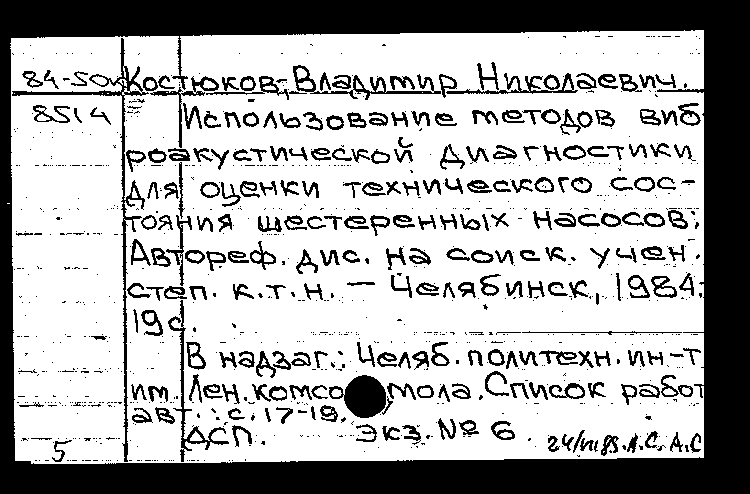 84-50к Костюков, Владимир Николаевич.
8514 Использование методов виб-
роакустической диагностики
для оценки технического сос-
тояния шестеренных насосов:
Автореф. дис. на соиск. учен.
степ. к.т.н. — Челябинск, 1984.
19 с.
В надзаг.: Челяб. политехн. ин-т
им. Лен. комсомола. Список работ
авт.: с. 17-19.
ДСП. Экз. № 6
5 24/VII 85. А.С. А.С